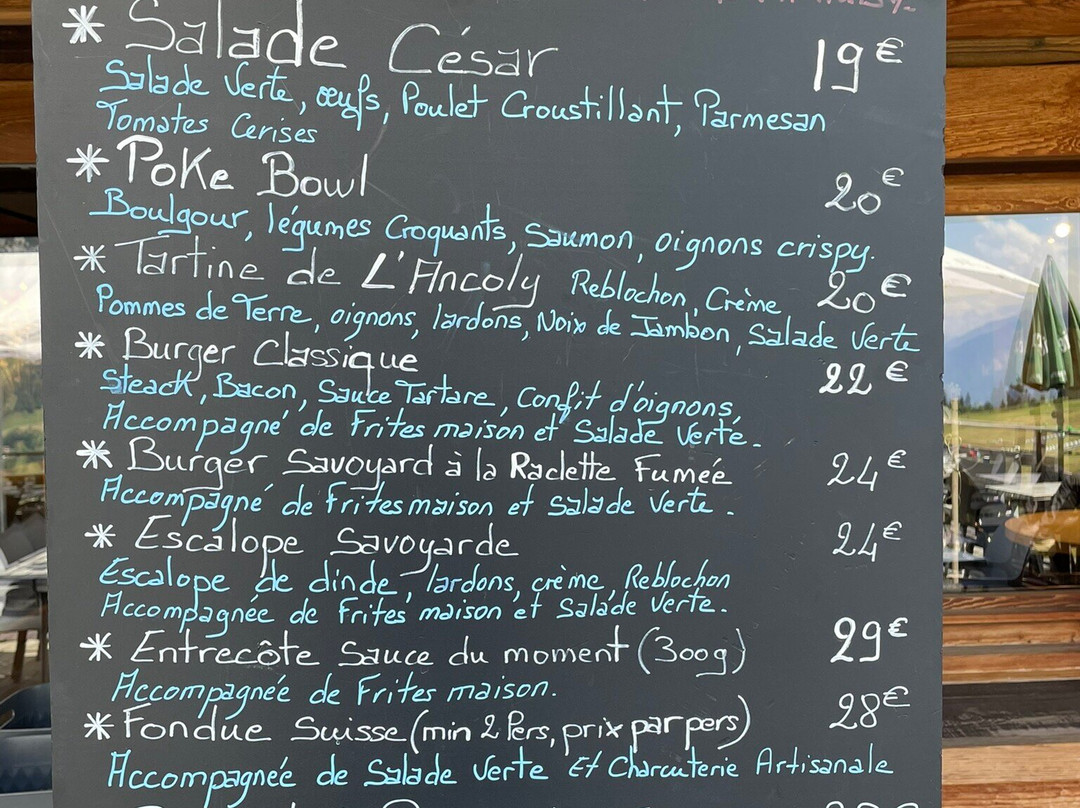 * Salade César 19€
Salade Verte, œufs, Poulet Croustillant, Parmesan
Tomates Cerises
* Poke Bowl 20€
Boulgour, légumes Croquants, Saumon, oignons crispy.
* Tartine de L'Ancoly Reblochon, Crème 20€
Pommes de Terre, oignons, lardons, Noix de Jambon, Salade Verte
* Burger Classique 22€
Steack, Bacon, Sauce Tartare, Confit d'oignons,
Accompagné de Frites maison et Salade Verte.
* Burger Savoyard à la Raclette Fumée 24€
Accompagné de Frites maison et Salade Verte.
* Escalope Savoyarde 24€
Escalope de dinde, lardons, crème, Reblochon
Accompagnée de Frites maison et Salade Verte.
* Entrecôte Sauce du moment (300g) 29€
Accompagnée de Frites maison.
* Fondue Suisse (min 2 Pers, prix par pers) 28€
Accompagnée de Salade Verte Et Charcuterie Artisanale